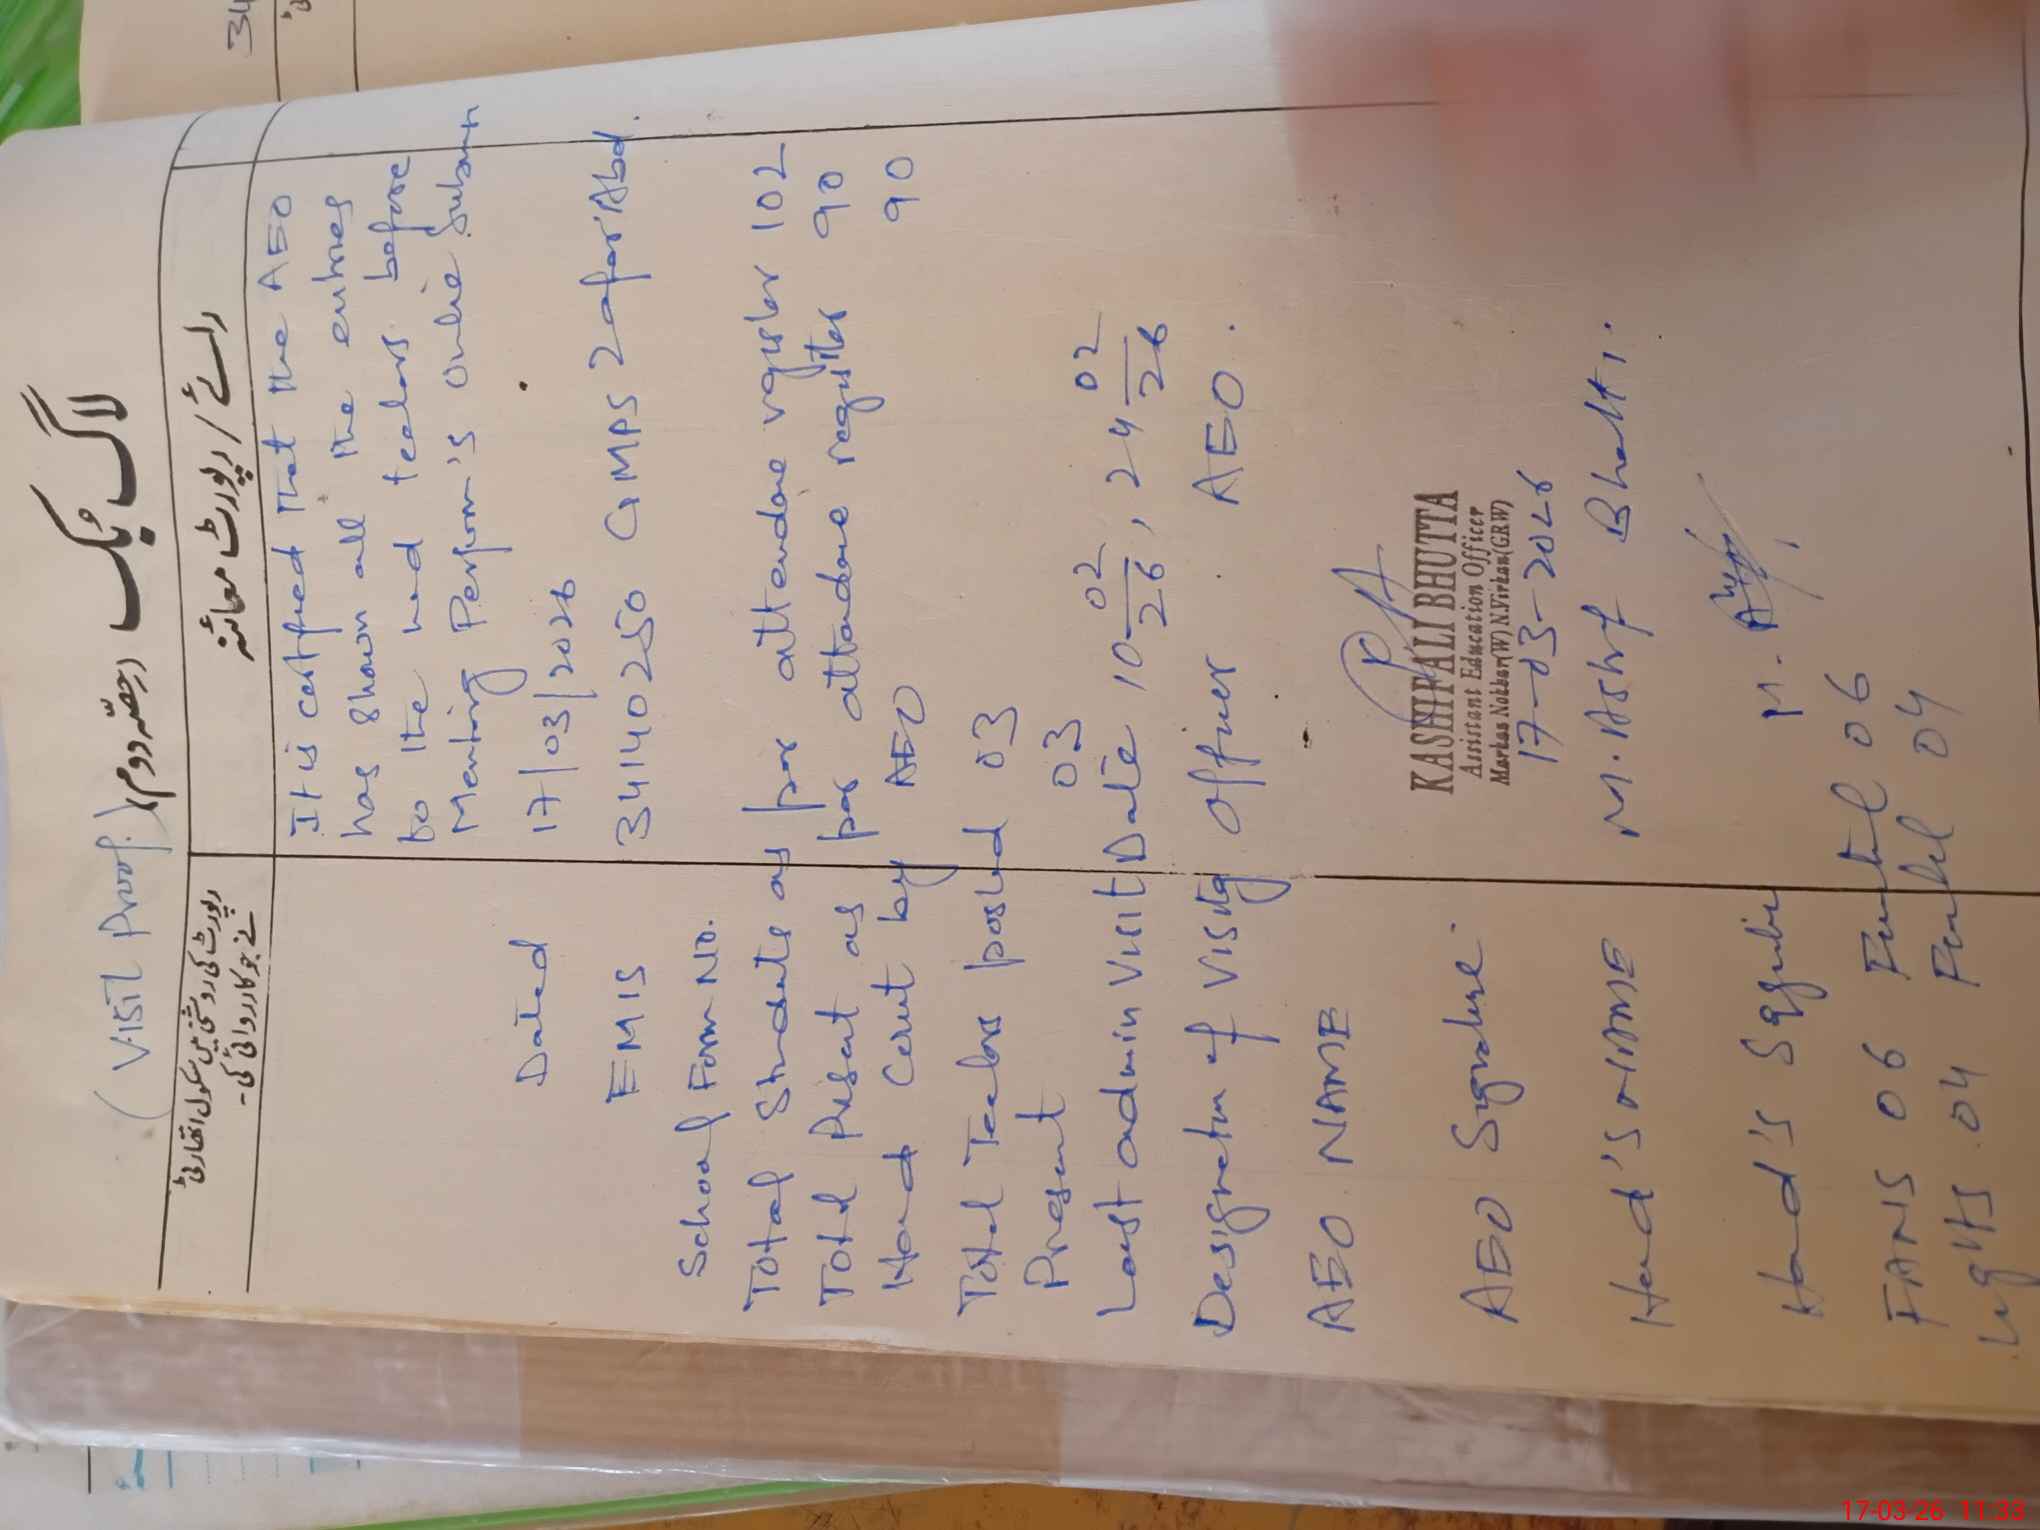 (Visit Proof)
لاگ بُک (حصّہ دوم)
رپورٹ کی روشنی میں سکول اتھارٹی
نے جو کارروائی کی۔
رائے / رپورٹ معائنہ
It is certified that the AEO
has shown all the entries
to the head teachers before
Mentoring Perform's Online
Dated 17/03/2026
EMIS 34140250 GMPS ZafarAbd.
School Form No.
Total Students as per attendance register 102
Total Present as per attendance register 90
Head Count by AEO 90
Total Teachers posted 03
Present 03
Last admin Visit Date 10 02/26, 24 02/26
Designation of Visiting Officer. AEO.
AEO NAME
KASHIF ALI BHUTTA
Assistant Education Officer
Markaz Nokhar(W) N.Virkan(GRW)
AEO Signature
17-03-2026
Head's NAME M. Ashrf Bhatti.
Head's Signature M.
FANS 06 Functional 06
Lights 04 Functional 04
34
17-03-26 11:33